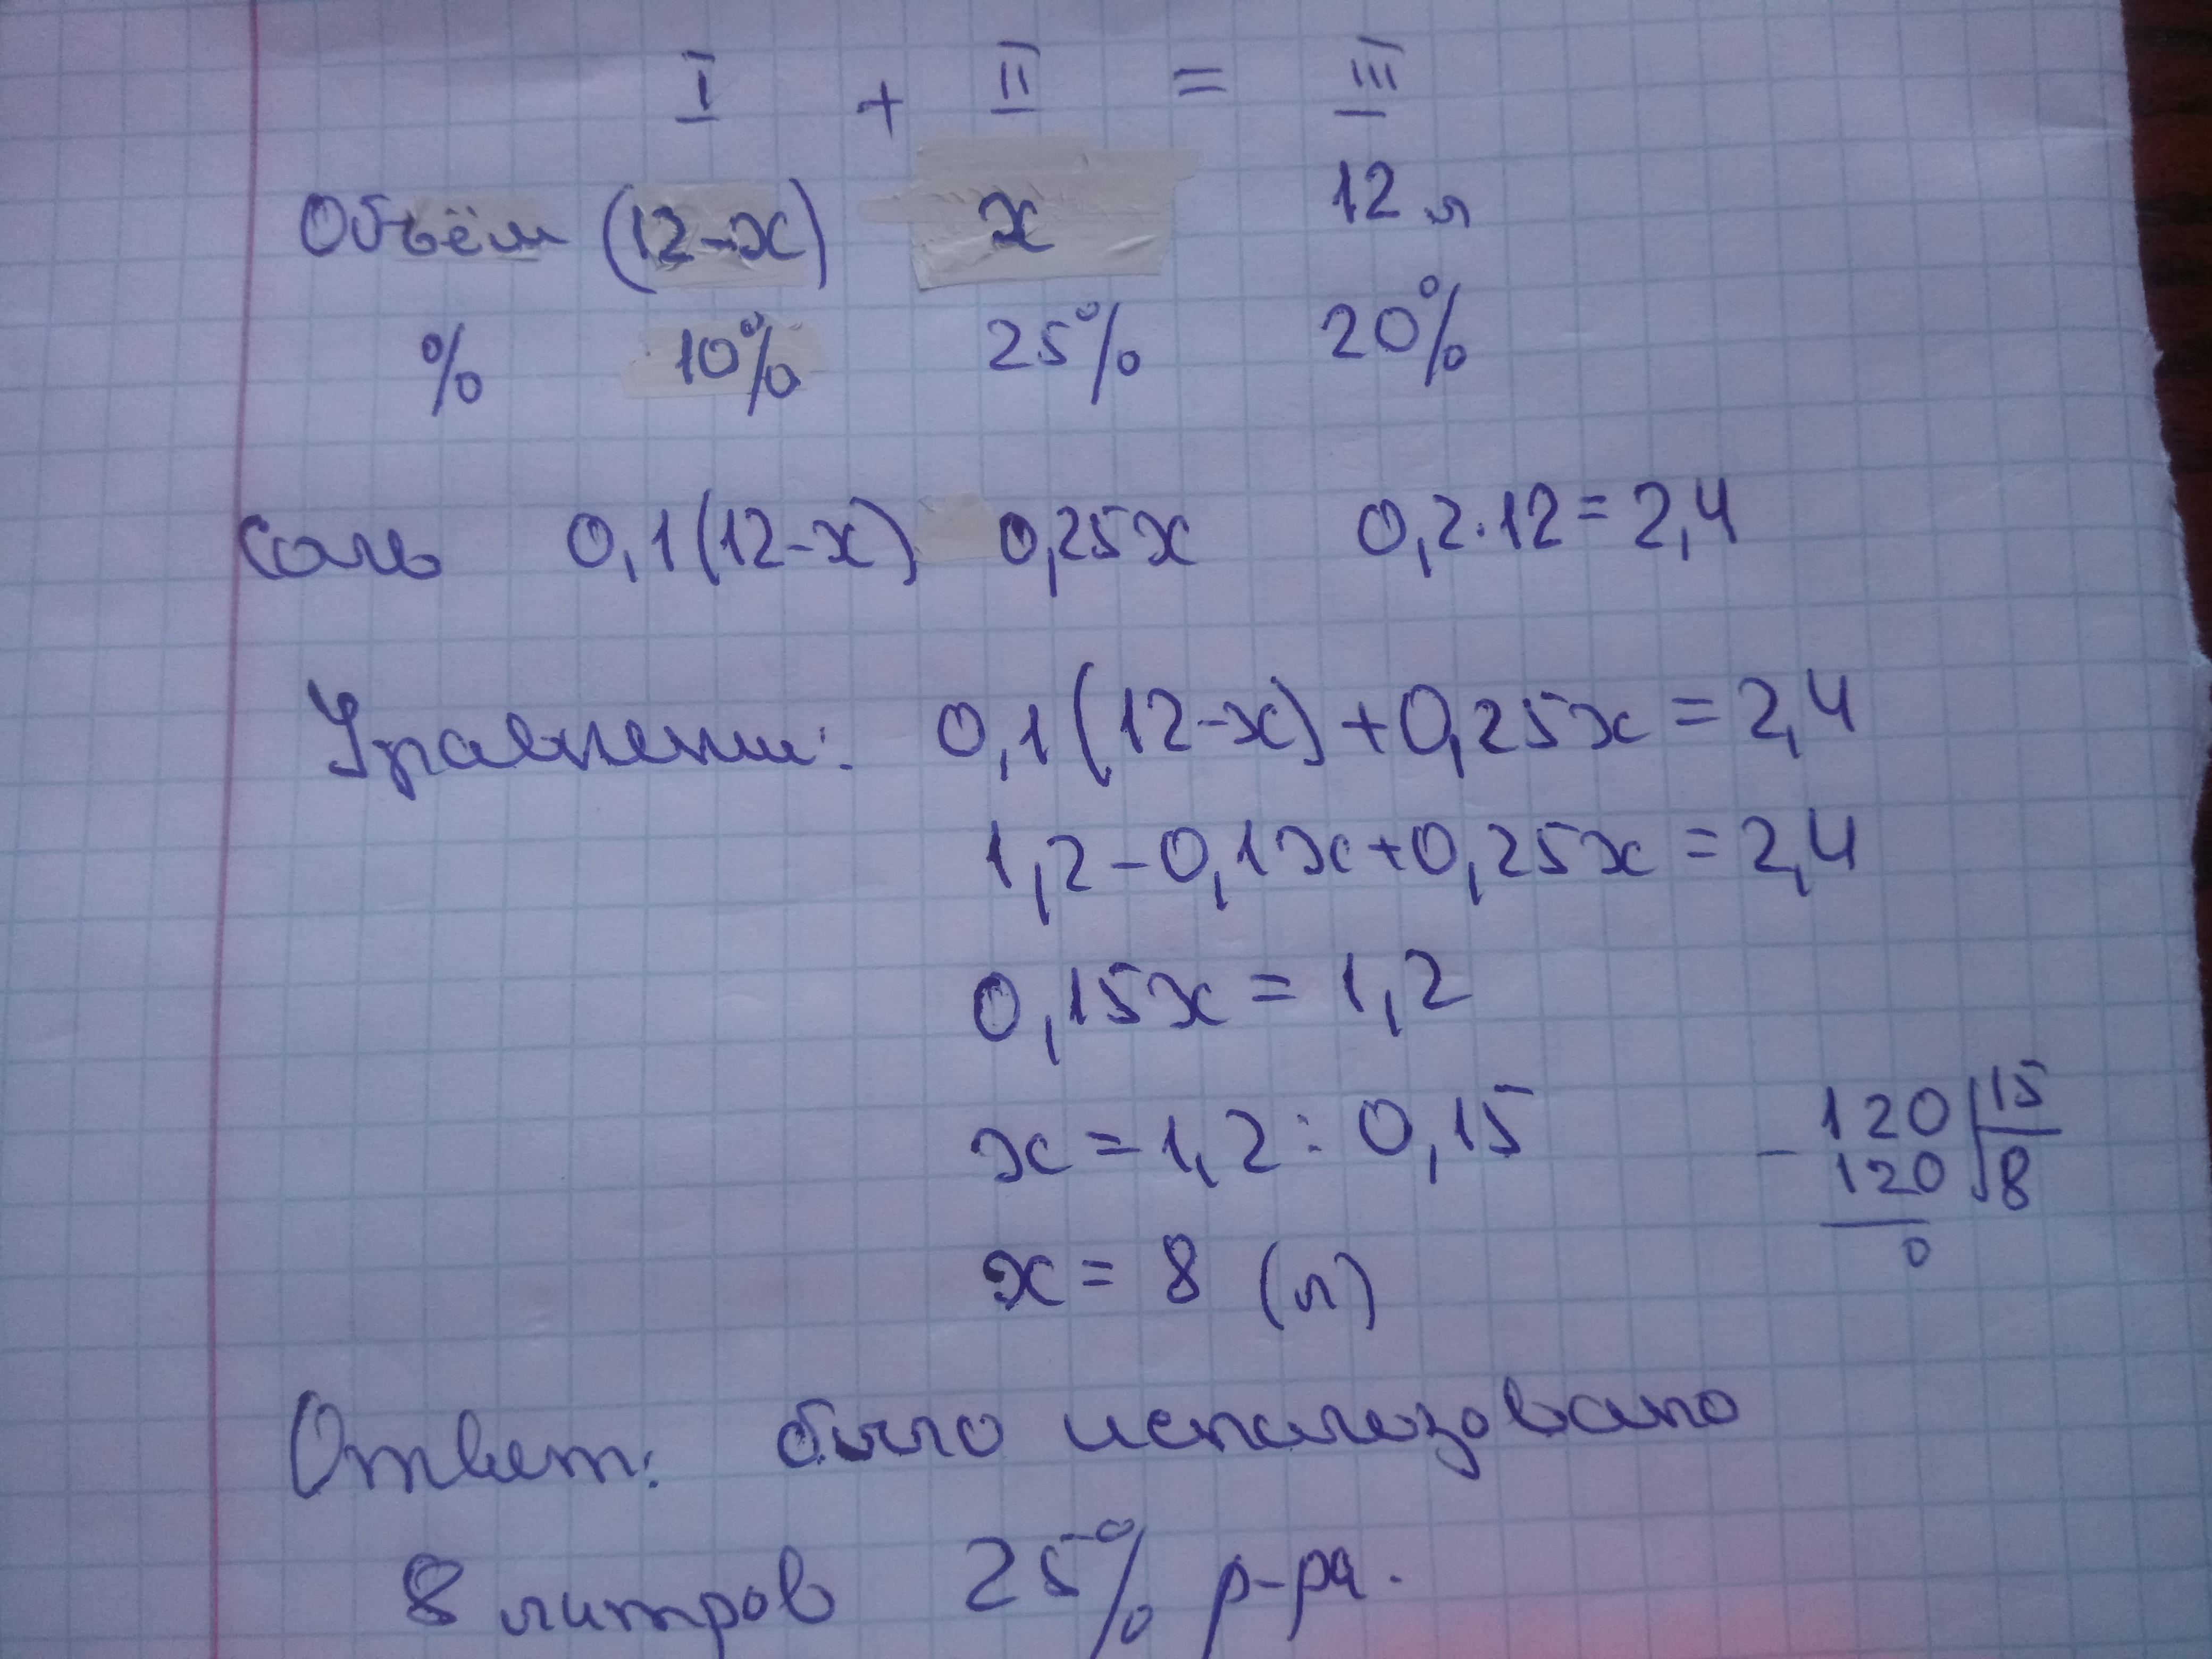 I + II = III
Объём (12-x) x 12 л
% 10% 25% 20%
соль 0,1(12-x) 0,25x 0,2·12=2,4
Уравнение: 0,1(12-x)+0,25x=2,4
1,2-0,1x+0,25x=2,4
0,15x=1,2
x=1,2:0,15
120 | 15
- 120 | 8
0
x=8 (л)
Ответ: было использовано
8 литров 25% р-ра.